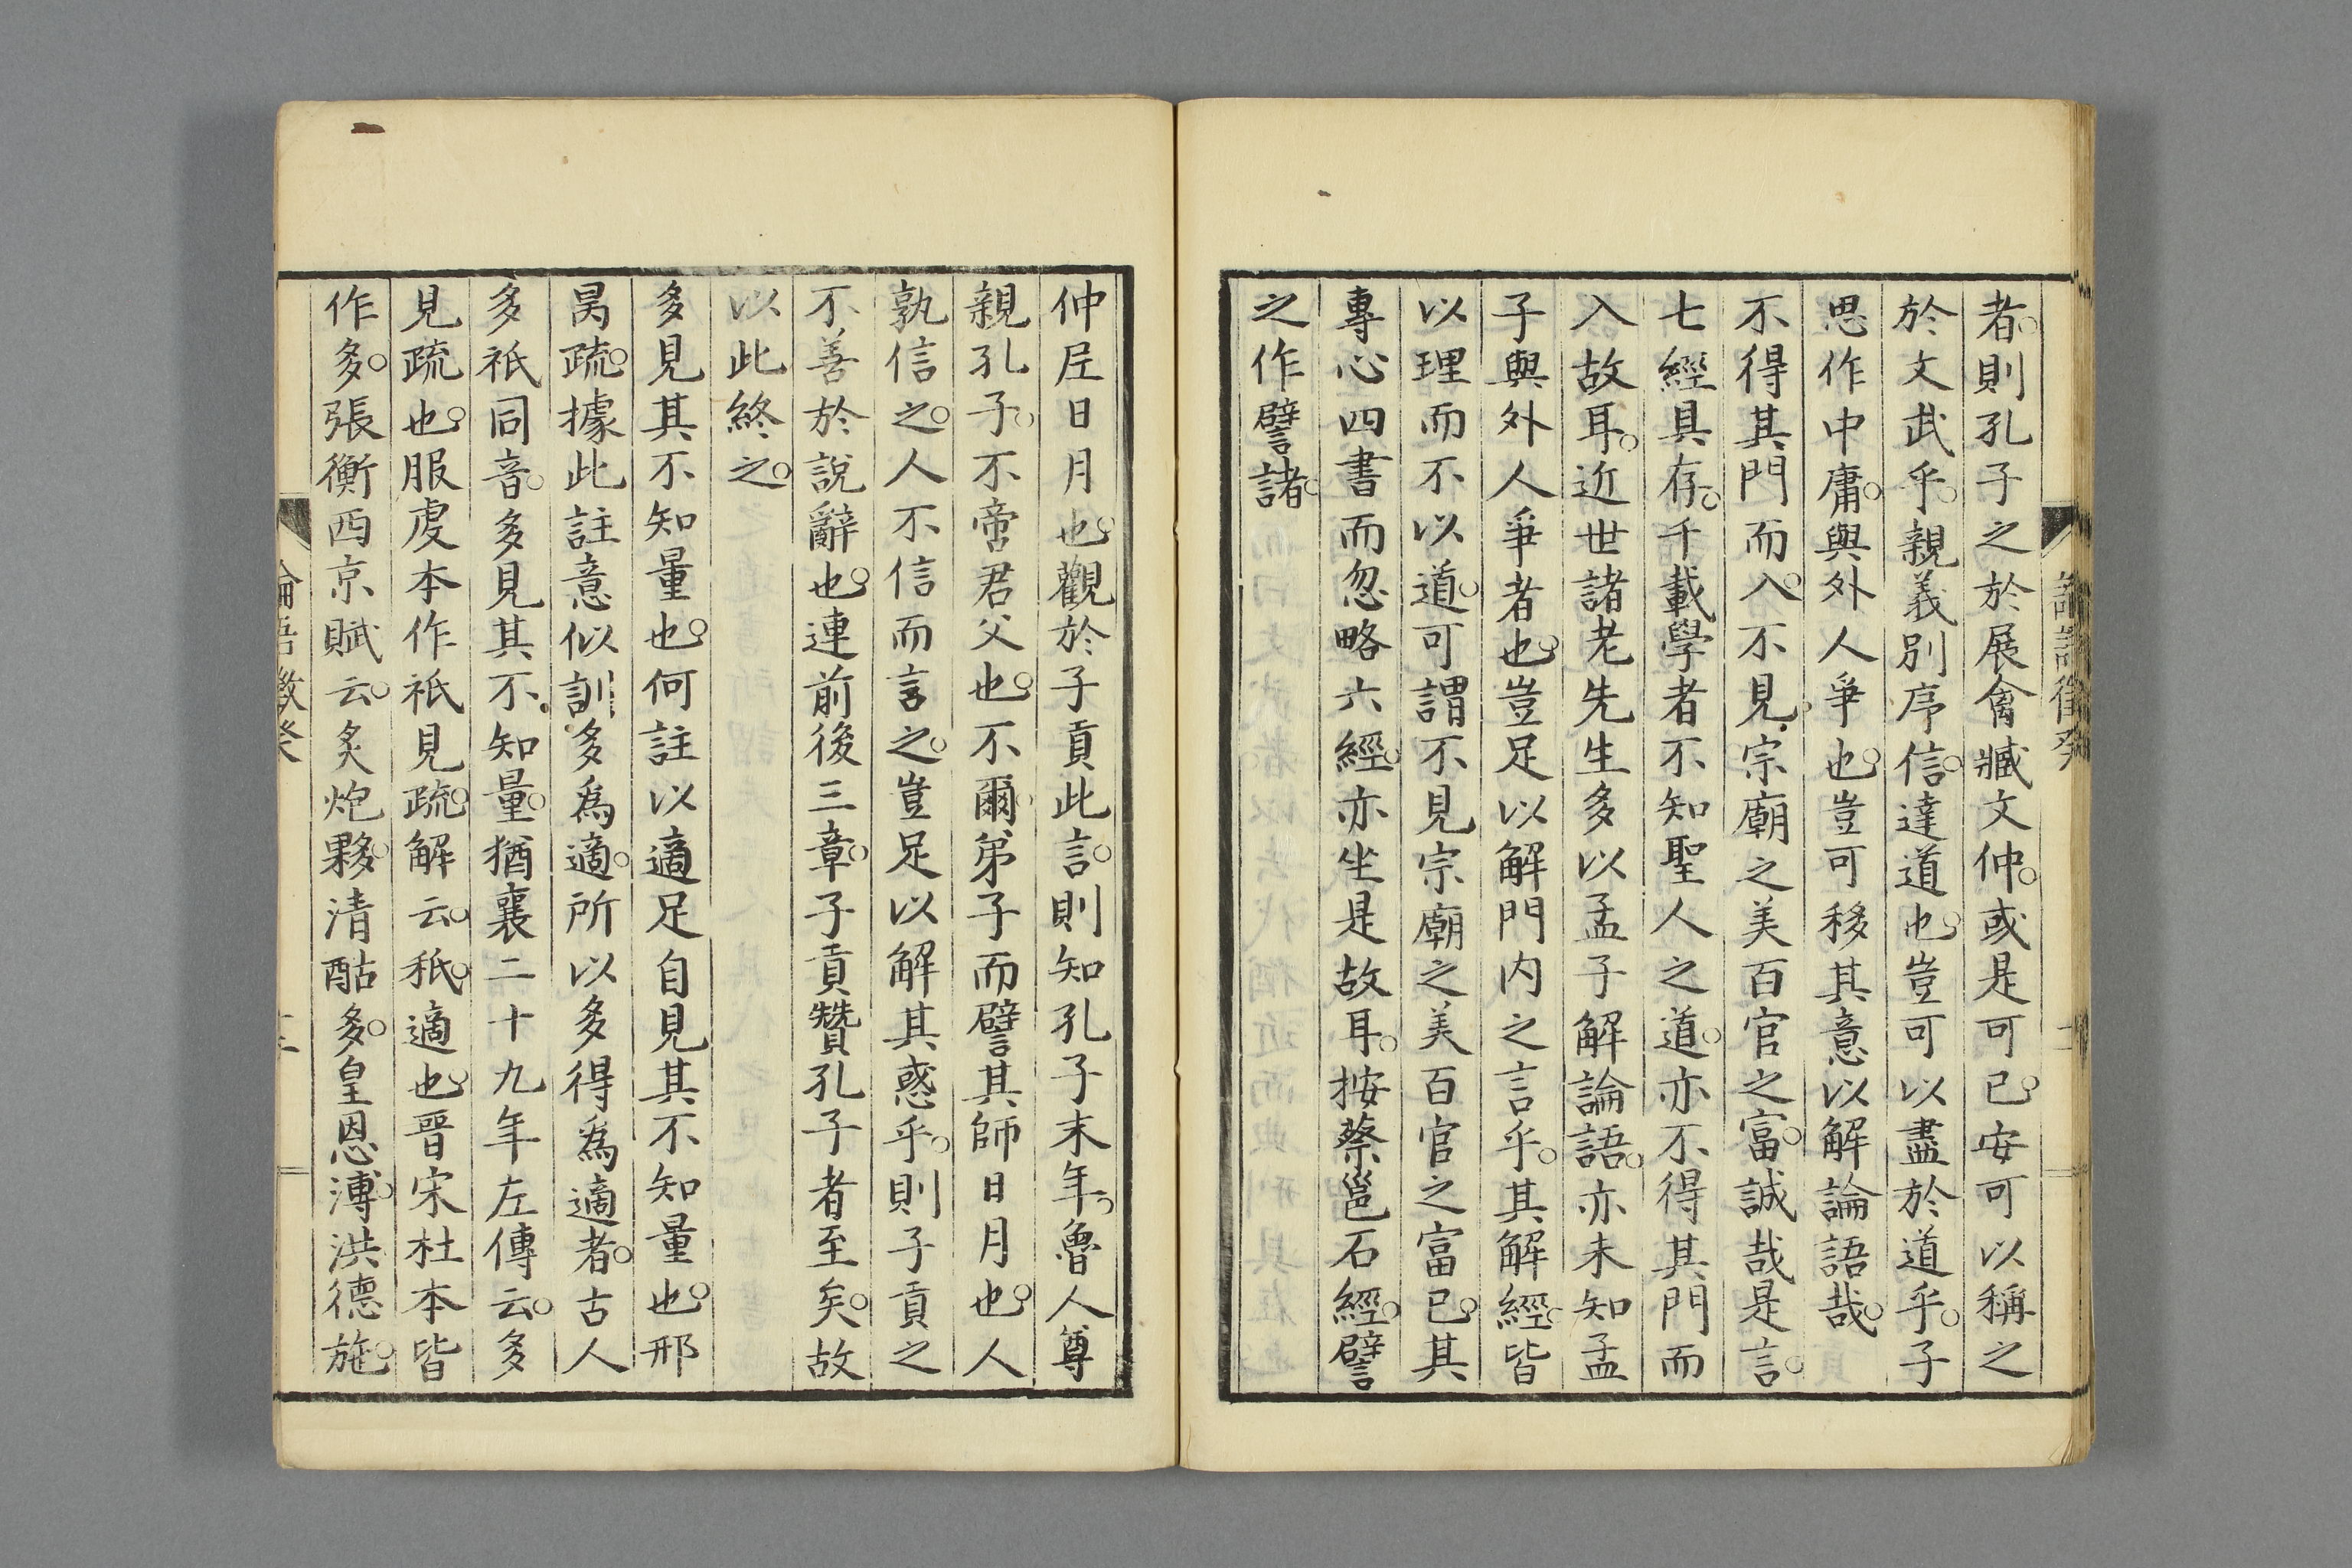 者。則孔子之於展禽臧文仲。或是可已。安可以稱之
於文武乎。親義別序信。達道也。豈可以盡於道乎。子
思作中庸。與外人爭也。豈可移其意以解論語哉。
不得其門而入。不見宗廟之美百官之富。誠哉是言。
七經具存。千載學者不知聖人之道。亦不得其門而
入故耳。近世諸老先生多以孟子解論語。亦未知孟
子與外人爭者也。豈足以解門内之言乎。其解經。皆
以理而不以道。可謂不見宗廟之美百官之富已。其
專心四書而忽略六經。亦坐是故耳。按蔡邕石經。譬
之作譬諸。
仲尼日月也。觀於子貢此言。則知孔子末年。魯人尊
親孔子。不啻君父也。不爾。弟子而譬其師日月也。人
孰信之。人不信而言之。豈足以解其惑乎。則子貢之
不善於說辭也。連前後三章。子貢贊孔子者至矣。故
以此終之。
多見其不知量也。何註以適足自見其不知量也。邢
昺疏。據此註意似訓多爲適。所以多得爲適者。古人
多祇同音。多見其不知量。猶襄二十九年左傳云。多
見疏也。服虔本作祇見疏。解云。祇。適也。晉宋杜本皆
作多。張衡西京賦云。炙炮夥。清酤多。皇恩溥。洪德施。
論語徵癸